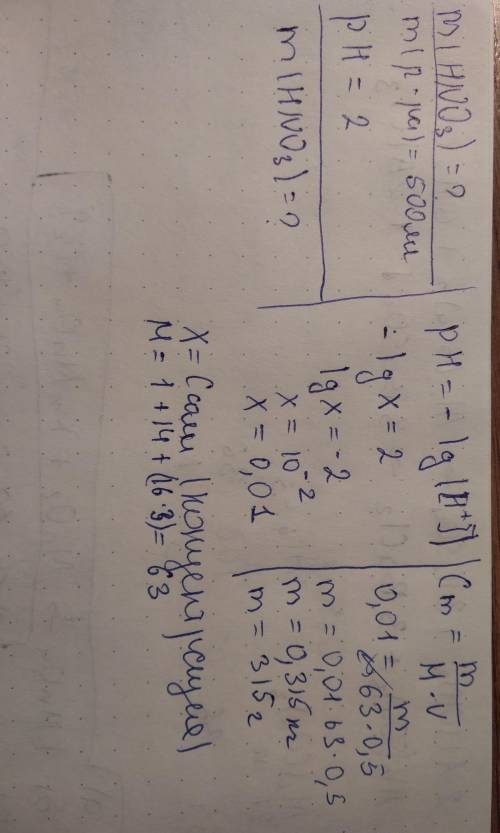 m(HNO₃) = ?
m(р-ра) = 500мл
pH = 2
m(HNO₃) = ?
pH = - lg([H⁺])
- lg x = 2
lg x = -2
x = 10⁻²
x = 0,01
Cm = m / M·V
0,01 = m / 63·0,5
m = 0,01·63·0,5
m = 0,315 кг
m = 315 г
X = Cсам (концентрация)
M = 1 + 14 + (16·3) = 63